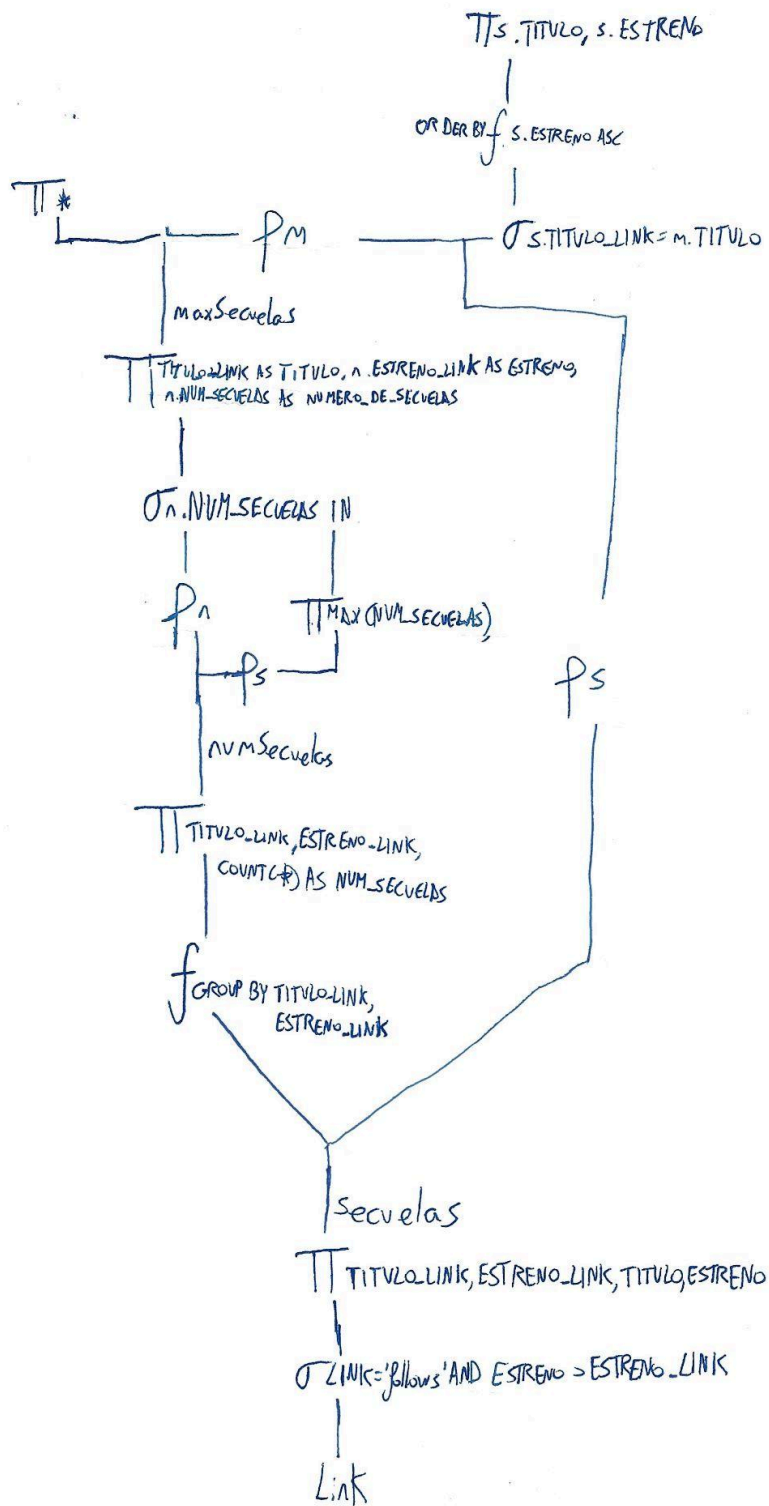 π S.TITULO, S.ESTRENO
ORDER BY f S.ESTRENO ASC
π *
ρ M
σ S.TITULO_LINK = M.TITULO
maxSecuelas
π TITULO_LINK AS TITULO, n.ESTRENO_LINK AS ESTRENO,
n.NUM_SECUELAS AS NUMERO_DE_SECUELAS
σ n.NUM_SECUELAS IN
ρ n
π MAX(NUM_SECUELAS)
ρ s
ρ s
numSecuelas
π TITULO_LINK, ESTRENO_LINK,
COUNT(*) AS NUM_SECUELAS
f GROUP BY TITULO_LINK,
ESTRENO_LINK
secuelas
π TITULO_LINK, ESTRENO_LINK, TITULO, ESTRENO
σ LINK='follows' AND ESTRENO > ESTRENO_LINK
Link